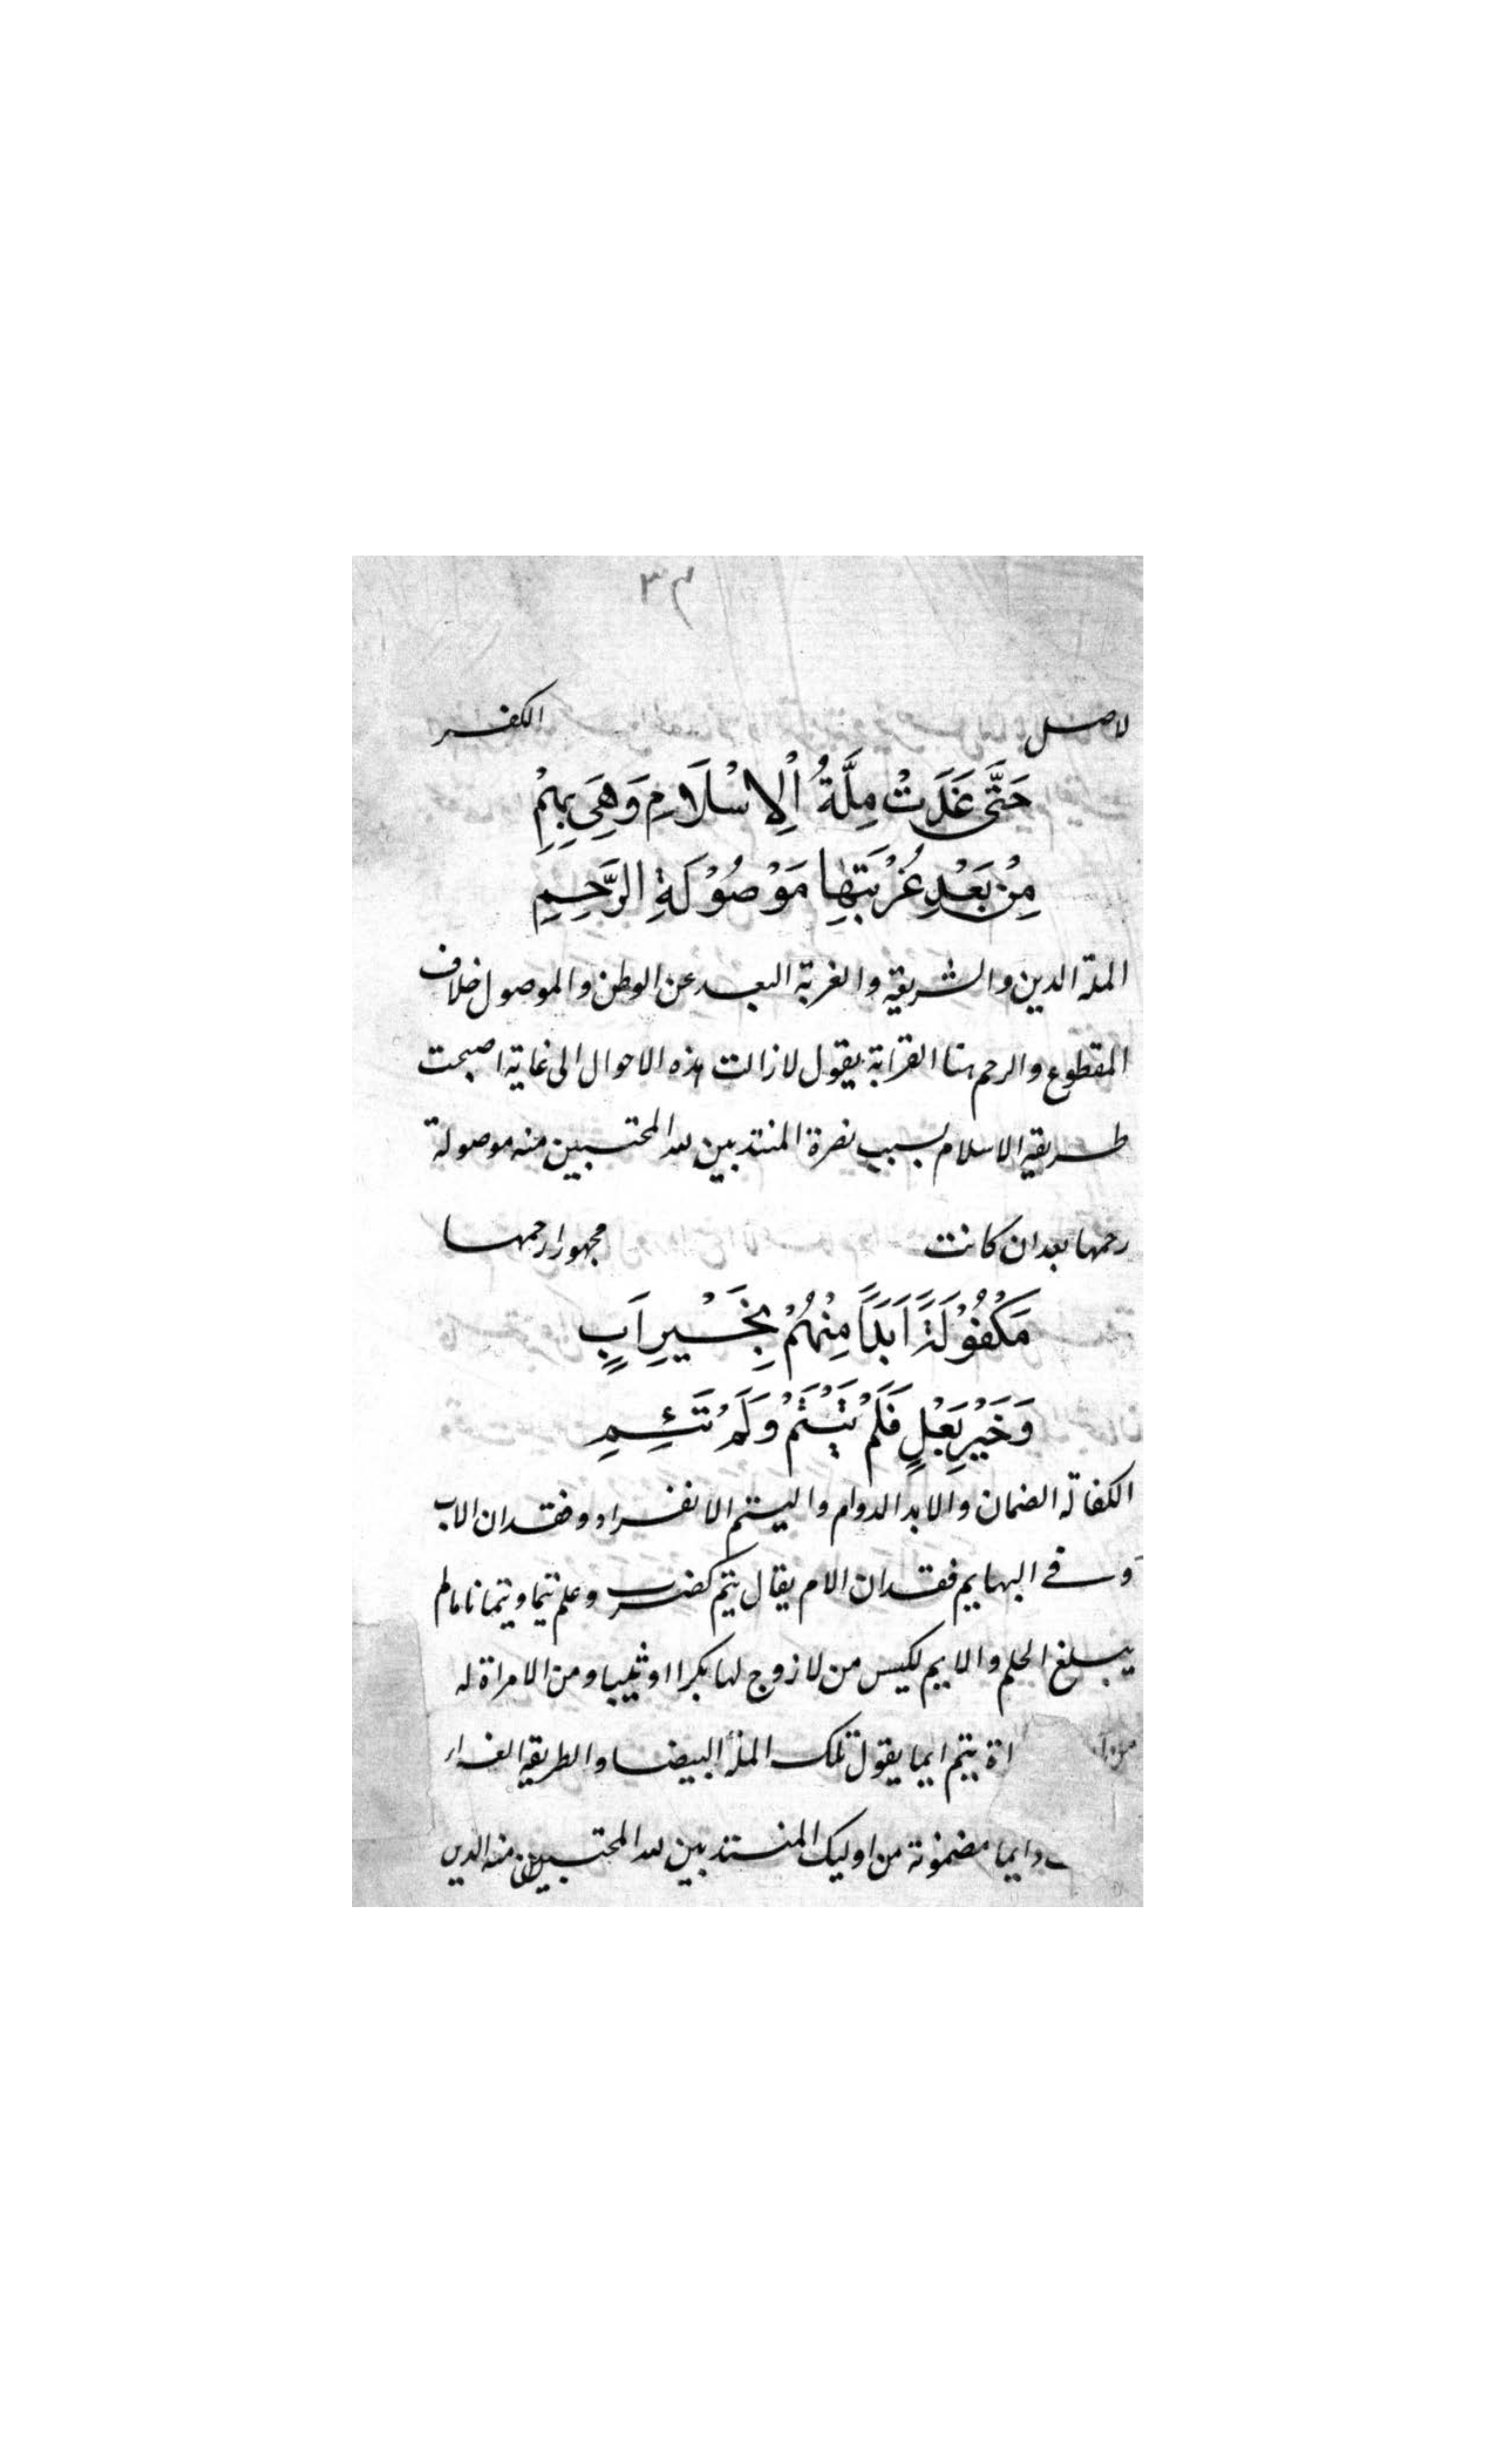 لاصل الكفر
حَتَّى غَدَتْ مِلَّةُ اْلاِسْلَامِ وَهِيَ بِهِمِ
مِنْ بَعْدِ غُرْبَتِهَا مَوْصُوْلَةِ الرَّحِمِ
الملة الدين والشريقة والغربة البعد عن الوطن والموصول خلاف
المقطوع والرحم هنا القرابة يقول لا زالت هذه الاحوال الى غاية اصبحت
طريقة الاسلام بسبب نصرة المنتدبين لله المحتسبين منه موصولة
رحمها بعد ان كانت مجهورا رحمها
مَكْفُوْلَةً اَبَدًا مِنْهُمْ بِخَيْرِ اَبٍ
وَخَيْرِ بَعْلٍ فَلَمْ تَيْتَمْ وَلَمْ تَئِمِ
الكفالة الضمان والابد الدوام واليتم الانفراد وفقدان الاب
وفي البهايم فقدان الام يقال يتم كضرب وعلم يتما ويتما ما لم
يبلغ الحلم والايم لكيس من لا زوج لها بكرا او ثيبا ومن لا امراة له
يتم ايما يقول تلك الملة البيضا والطريقة الغراء
دايما مضمونة من اوليك المنتدبين لله المحتسبين منه الدين